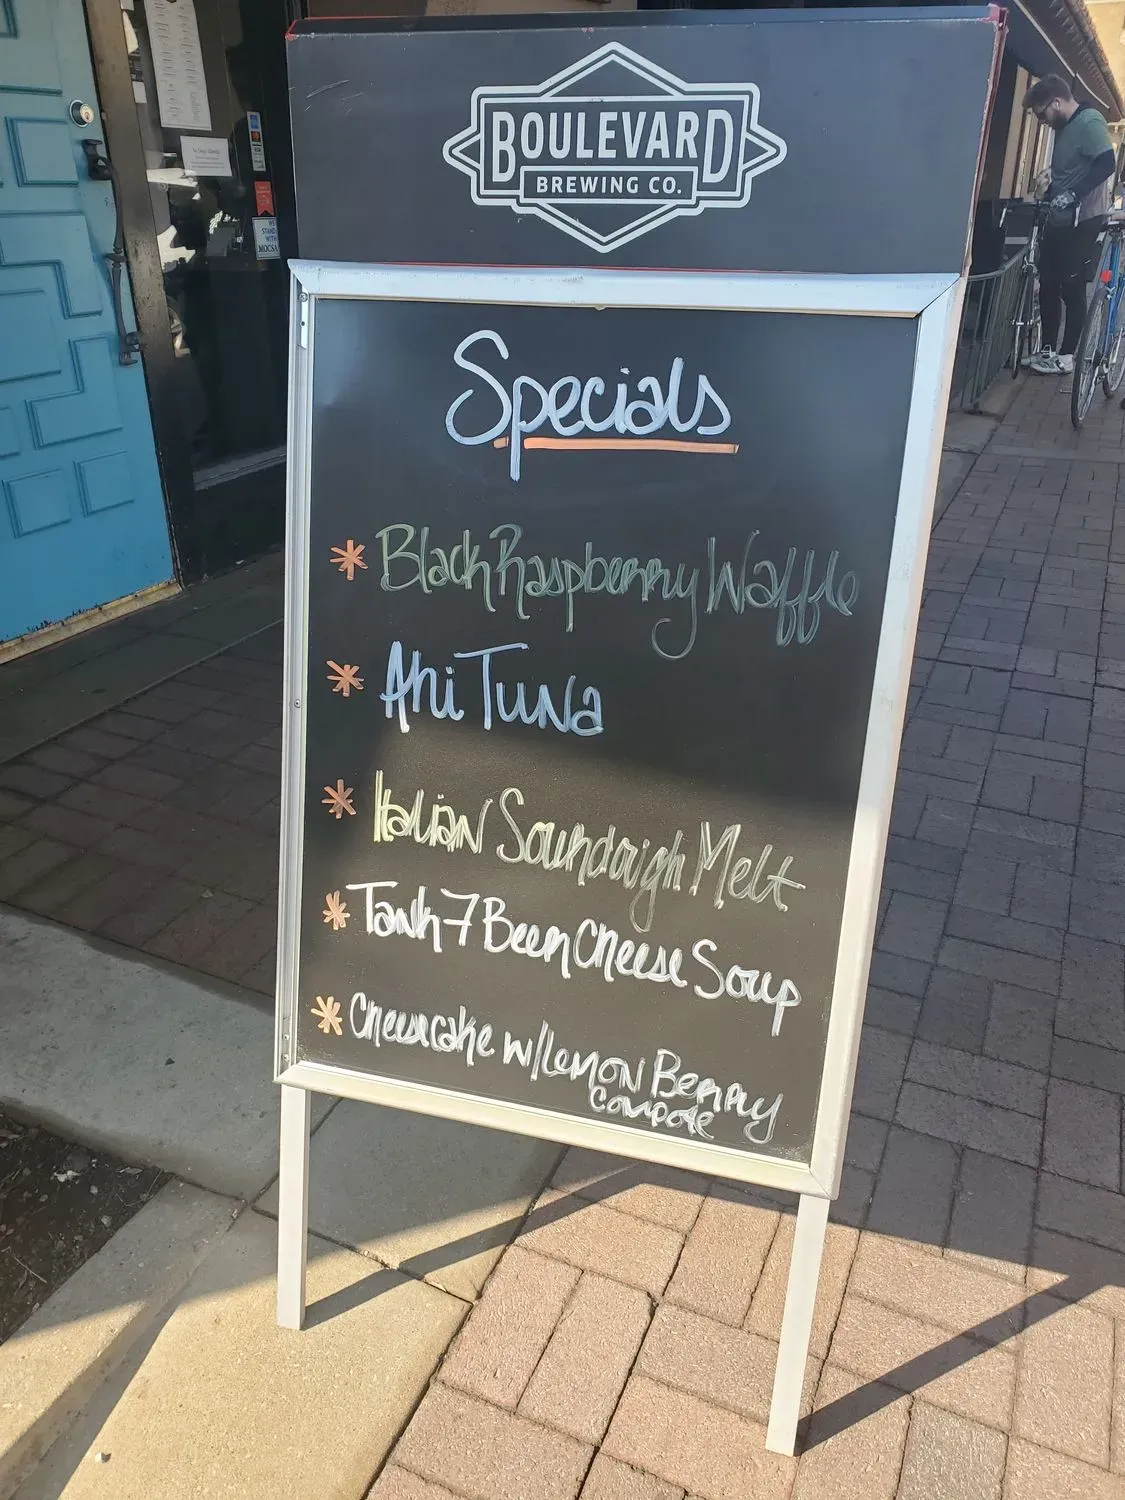 BOULEVARD
BREWING CO.
Specials
* Black Raspberry Waffle
* Ahi Tuna
* Italian Sourdough Melt
* Tank 7 Beer Cheese Soup
* Cheesecake w/ Lemon Berry
Compote
WE
STAND
WITH
MOCSA